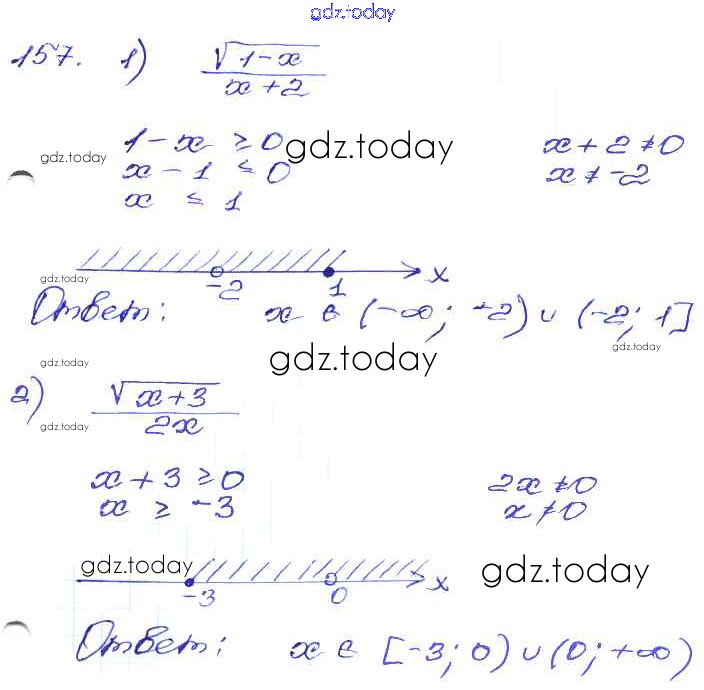 gdz.today
157. 1) √(1-x) / (x+2)
1-x ≥ 0 gdz.today x+2≠0
gdz.today x-1 ≤ 0 x≠-2
x ≤ 1
gdz.today -2 1 x
Ответ: x ∈ (-∞; -2) ∪ (-2; 1]
gdz.today
gdz.today
gdz.today
2) √(x+3) / 2x
gdz.today
x+3 ≥ 0 2x≠0
x ≥ -3 x≠0
gdz.today gdz.today
-3 0 x
Ответ: x ∈ [-3; 0) ∪ (0; +∞)